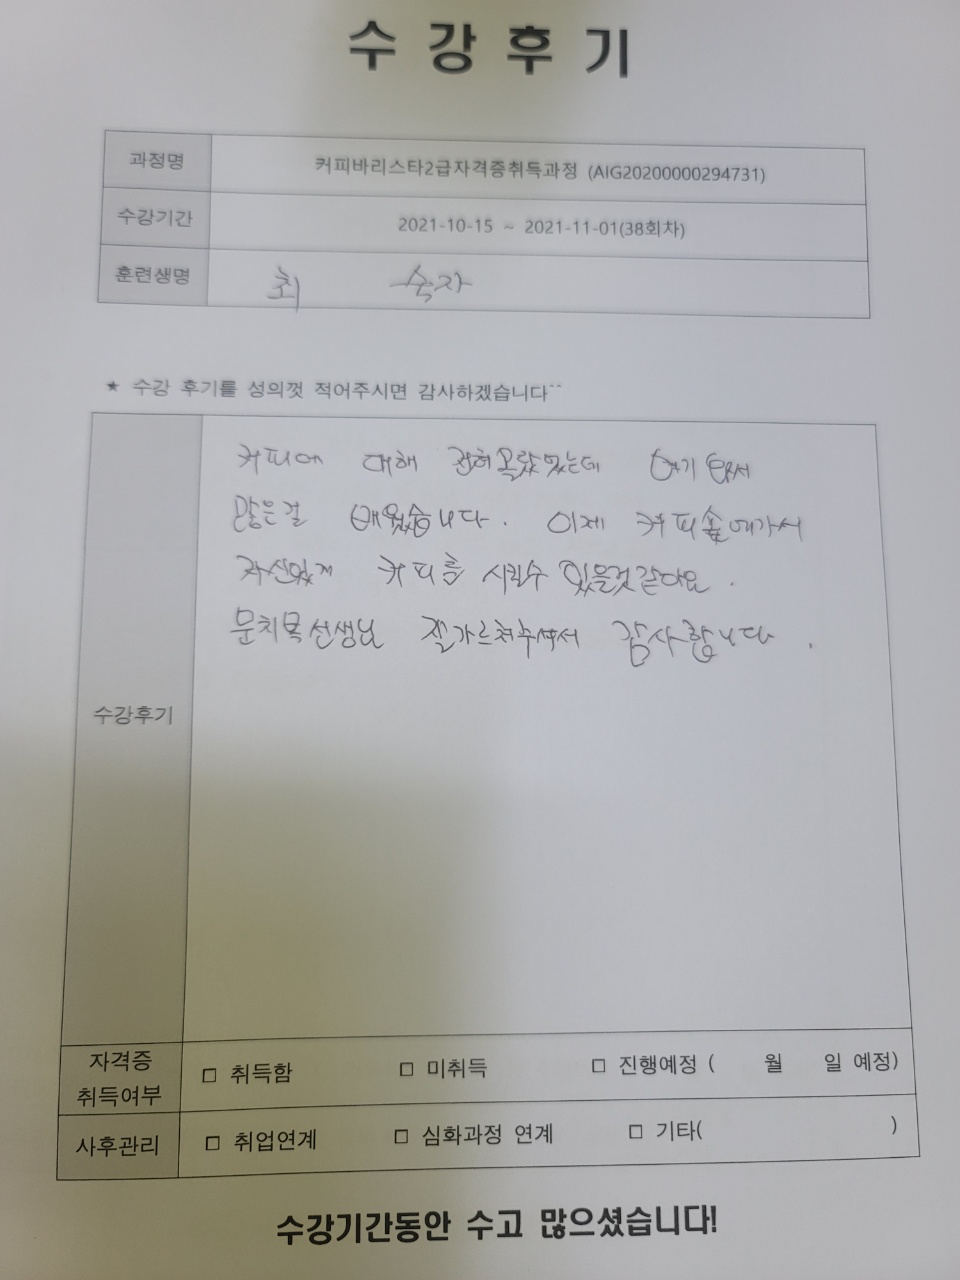 수 강 후 기
과정명 커피바리스타2급자격증취득과정 (AIG20200000294731)
수강기간 2021-10-15 ~ 2021-11-01(38회차)
훈련생명 최 숙자
★ 수강 후기를 성의껏 적어주시면 감사하겠습니다^^
커피에 대해 전혀몰랐었는데 여기 와서
많은걸 배웠습니다. 이제 커피숖에가서
자신있게 커피를 시킬수 있을것같아요.
수강후기
문치복선생님 잘가르쳐주셔서 감사합니다.
자격증 취득여부 □ 취득함 □ 미취득 □ 진행예정 ( 월 일 예정)
사후관리 □ 취업연계 □ 심화과정 연계 □ 기타( )
수강기간동안 수고 많으셨습니다!